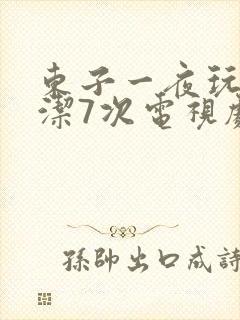 東子一夜玩
潔7次電視
孫帥出口成詩